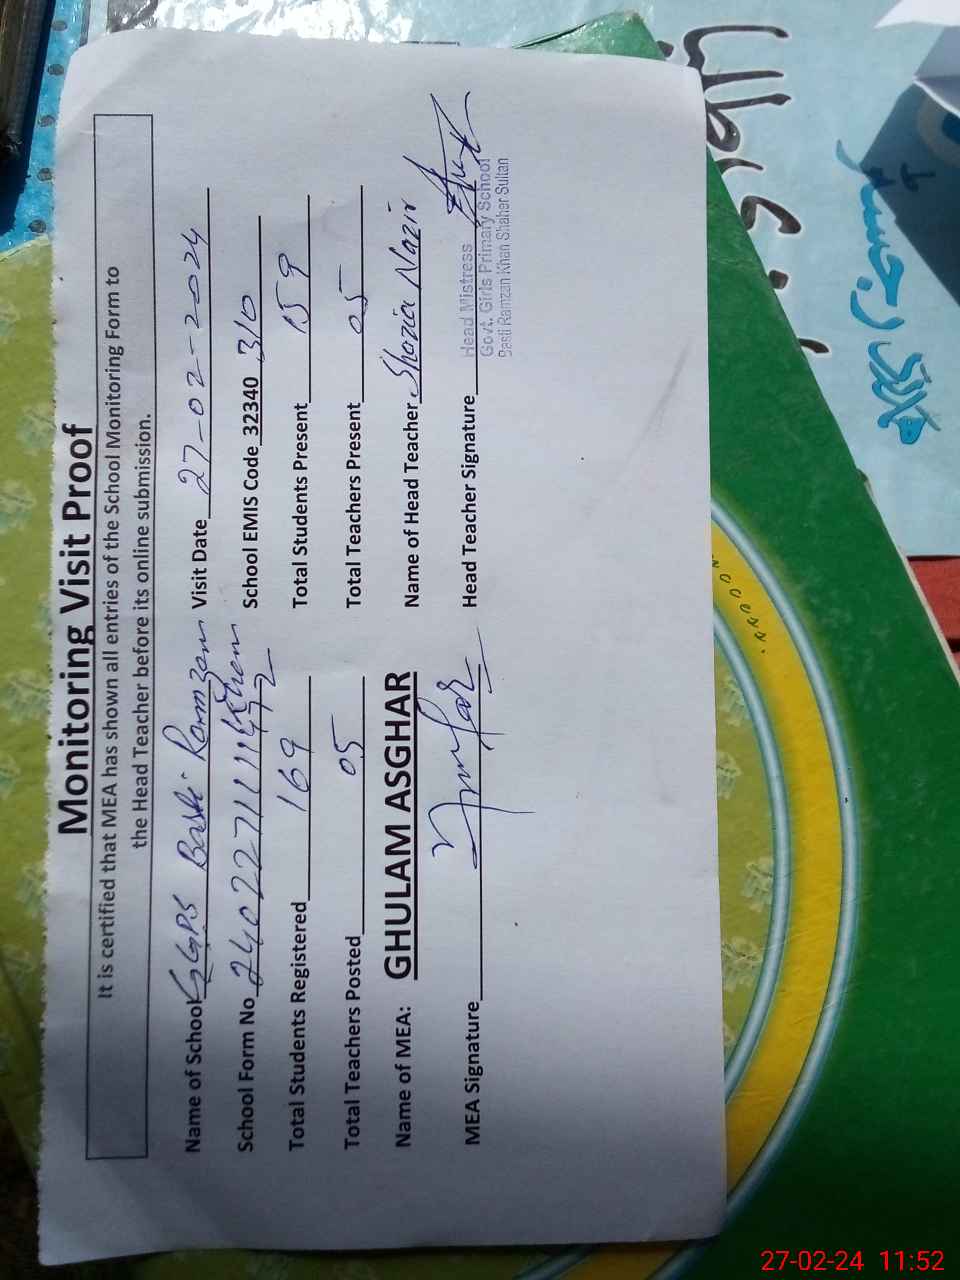 Monitoring Visit Proof
It is certified that MEA has shown all entries of the School Monitoring Form to
the Head Teacher before its online submission.
Name of School GGPS Basti Ramzan Khan Visit Date 27-02-2024
School Form No School EMIS Code 32340 310
Total Students Registered 169 Total Students Present 159
Total Teachers Posted 05 Total Teachers Present 05
Name of MEA: GHULAM ASGHAR Name of Head Teacher Shazia Nazir
MEA Signature Head Teacher Signature
Head Mistress
Govt. Girls Primary School
Basti Ramzan Khan Shaher Sultan
27-02-24 11:52